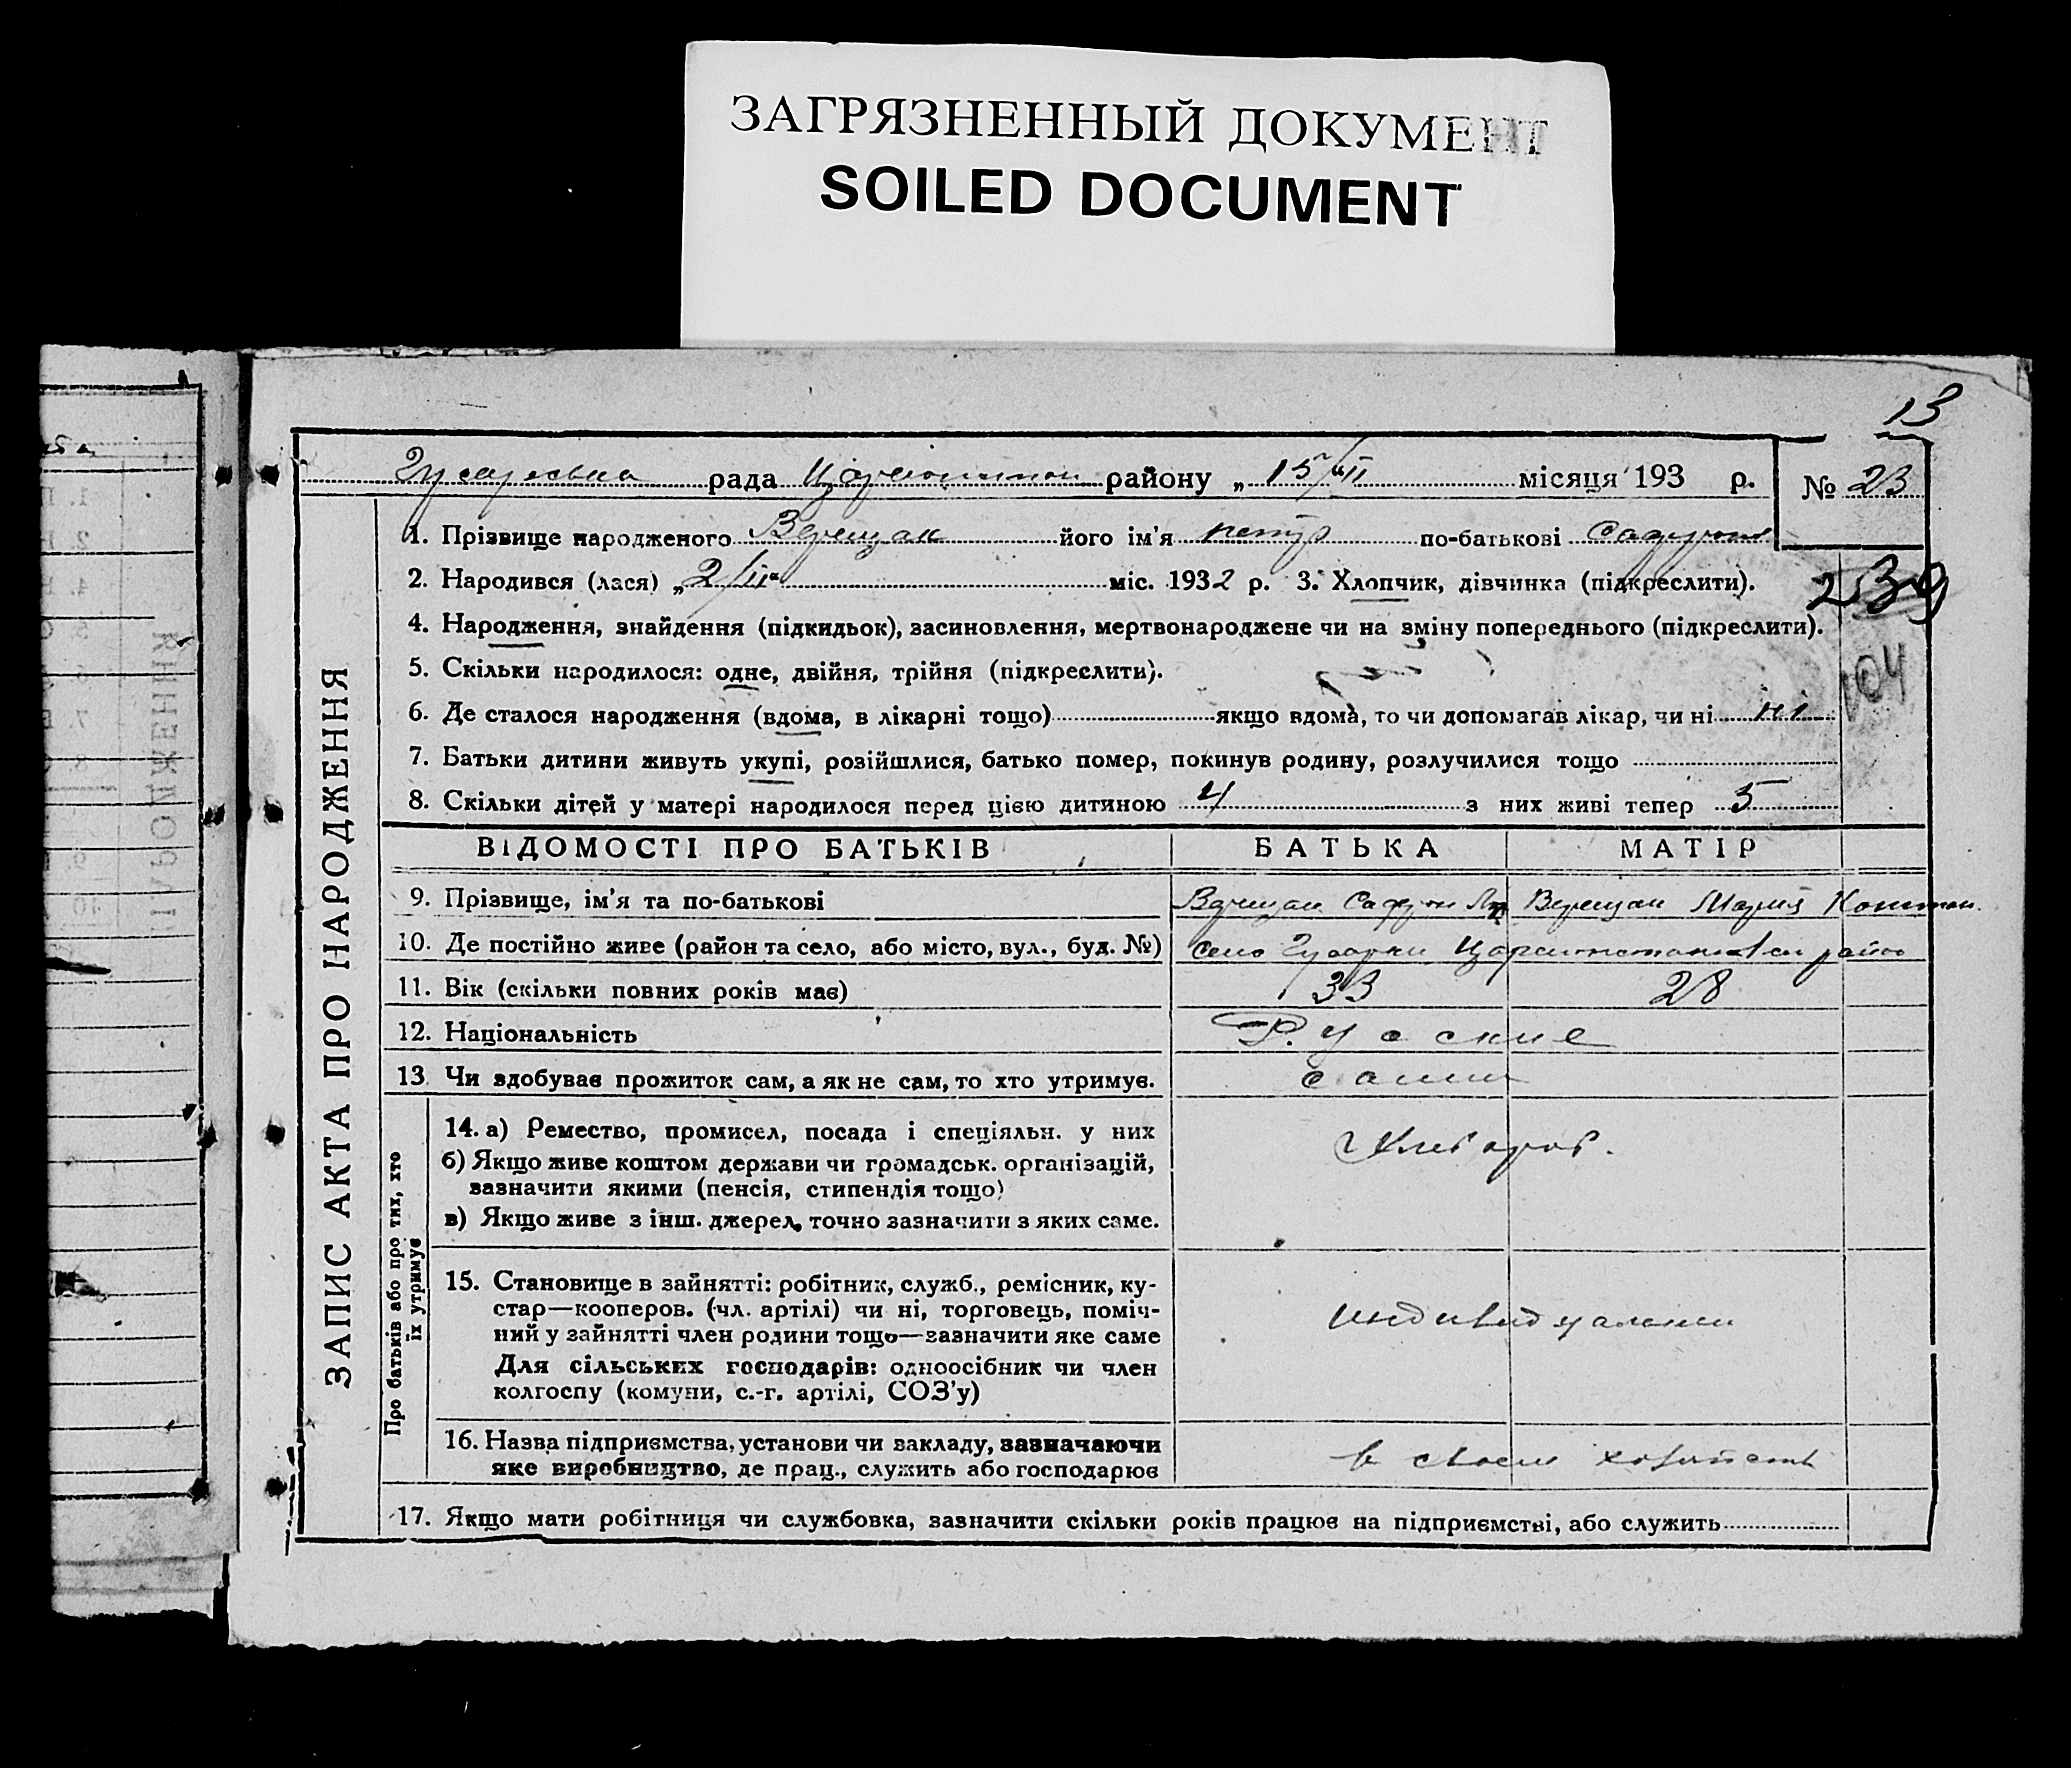 ЗАГРЯЗНЕННЫЙ ДОКУМЕНТ
SOILED DOCUMENT
13
рада района району „ 15/II місяця 193 р. № 23
ЗАПИС АКТА ПРО НАРОДЖЕННЯ
1. Прізвище народженого Верещак його ім'я петр по-батькові
2. Народився (лася) „2/II“ міс. 1932 р. 3. Хлопчик, дівчинка (підкреслити).
239
4. Народження, знайдення (підкидьок), засиновлення, мертвонароджене чи на зміну попереднього (підкреслити).
5. Скільки народилося: одне, двійня, трійня (підкреслити).
104
6. Де сталося народження (вдома, в лікарні тощо) якщо вдома, то чи допомагав лікар, чи ні ні
7. Батьки дитини живуть укупі, розійшлися, батько помер, покинув родину, розлучилися тощо
8. Скільки дітей у матері народилося перед цією дитиною 4 з них живі тепер 5
ВІДОМОСТІ ПРО БАТЬКІВ БАТЬКА МАТІР
9. Прізвище, ім'я та по-батькові Верещак Верещак Мария
10. Де постійно живе (район та село, або місто, вул., буд. №) село
11. Вік (скільки повних років має) 33 28
12. Національність Руские
13. Чи здобуває прожиток сам, а як не сам, то хто утримує. сами
Про батьків або про тих, хто
їх утримує
14. а) Ремество, промисел, посада і спеціяльн. у них
б) Якщо живе коштом держави чи громадськ. організацій,
зазначити якими (пенсія, стипендія тощо)
в) Якщо живе з інш. джерел, точно зазначити з яких саме.
Хлебороб.
15. Становище в зайнятті: робітник, служб., ремісник, ку-
стар—кооперов. (чл. артілі) чи ні, торговець, поміч-
ний у зайнятті член родини тощо—зазначити яке саме
Для сільських господарів: одноосібник чи член
колгоспу (комуни, с.-г. артілі, СОЗ'у)
16. Назва підприємства, установи чи закладу, зазначаючи
яке виробництво, де прац., служить або господарює
в своем
17. Якщо мати робітниця чи службовка, зазначити скільки років працює на підприємстві, або служить